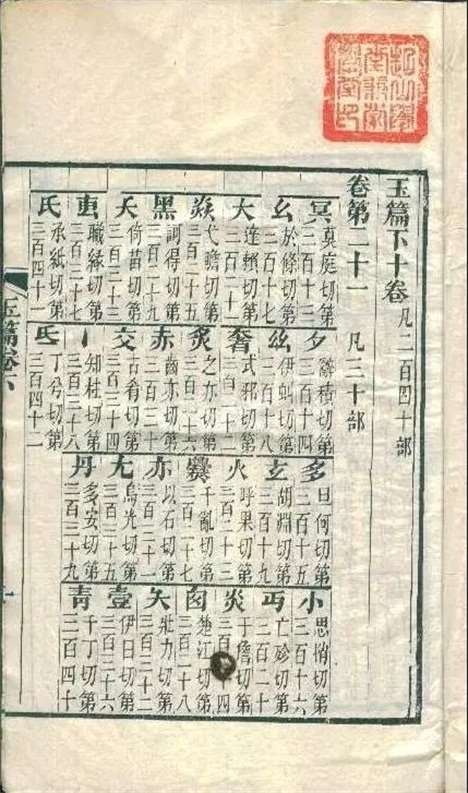 玉篇下十卷 凡二百四十部
卷第二十一 凡三十部
冥 莫庭切第三百十三
夕 辭積切第三百十四
多 旦何切第三百十五
小 思悄切第三百十六
幺 於條切第三百十七
𢆶 伊虯切第三百十八
玄 胡淵切第三百十九
丏 亡殄切第三百二十
大 達賴切第三百二十一
奢 式邪切第三百二十二
火 呼果切第三百二十三
炎 于詹切第三百二十四
焱 弋贍切第三百二十五
炙 之亦切第三百二十六
爨 千亂切第三百二十七
囱 楚江切第三百二十八
黑 訶得切第三百二十九
赤 齒亦切第三百三十
亦 以石切第三百三十一
夨 壯力切第三百三十二
夭 倚苗切第三百三十三
交 古肴切第三百三十四
尢 烏光切第三百三十五
壹 伊日切第三百三十六
叀 職緣切第三百三十七
丶 知柱切第三百三十八
丹 多安切第三百三十九
青 千丁切第三百四十
氏 承紙切第三百四十一
氐 丁兮切第三百四十二
玉篇卷六